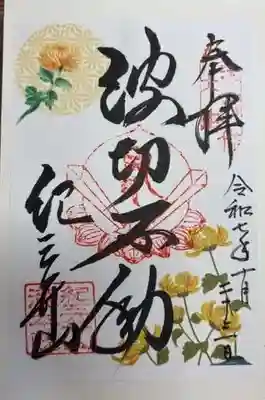 奉拝
令和七年十月二十三日
波切不動
紀三井山